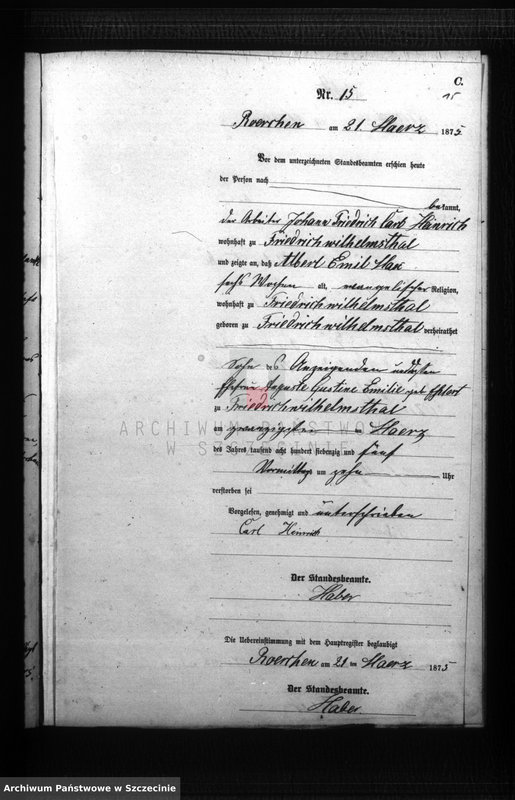 C.
Nr. 15
15
Roerchen am 21 Maerz 1875
Vor dem unterzeichneten Standesbeamten erschien heute
der Person nach
bekannt,
der Arbeiter Johann Friedrich Carl Heinrich
wohnhaft zu Friedrichwilhelmsthal
und zeigte an, daß Albert Emil Max
sechs Wochen alt, evangelischer Religion,
wohnhaft zu Friedrichwilhelmsthal
geboren zu Friedrichwilhelmsthal verheirathet
Sohn des Anzeigenden und dessen
Ehefrau Auguste Justine Emilie geb
zu Friedrichwilhelmsthal
am zwanzigsten Maerz
des Jahres tausend acht hundert siebenzig und fünf
Vormittags um zehn Uhr
verstorben sei
Vorgelesen, genehmigt und unterschrieben
Carl Heinrich
Der Standesbeamte.
Haber
Die Uebereinstimmung mit dem Hauptregister beglaubigt
Roerchen am 21 ten Maerz 1875
Der Standesbeamte.
Haber
ARCHIWUM PAŃSTWOWE
W SZCZECINIE
Archiwum Państwowe w Szczecinie